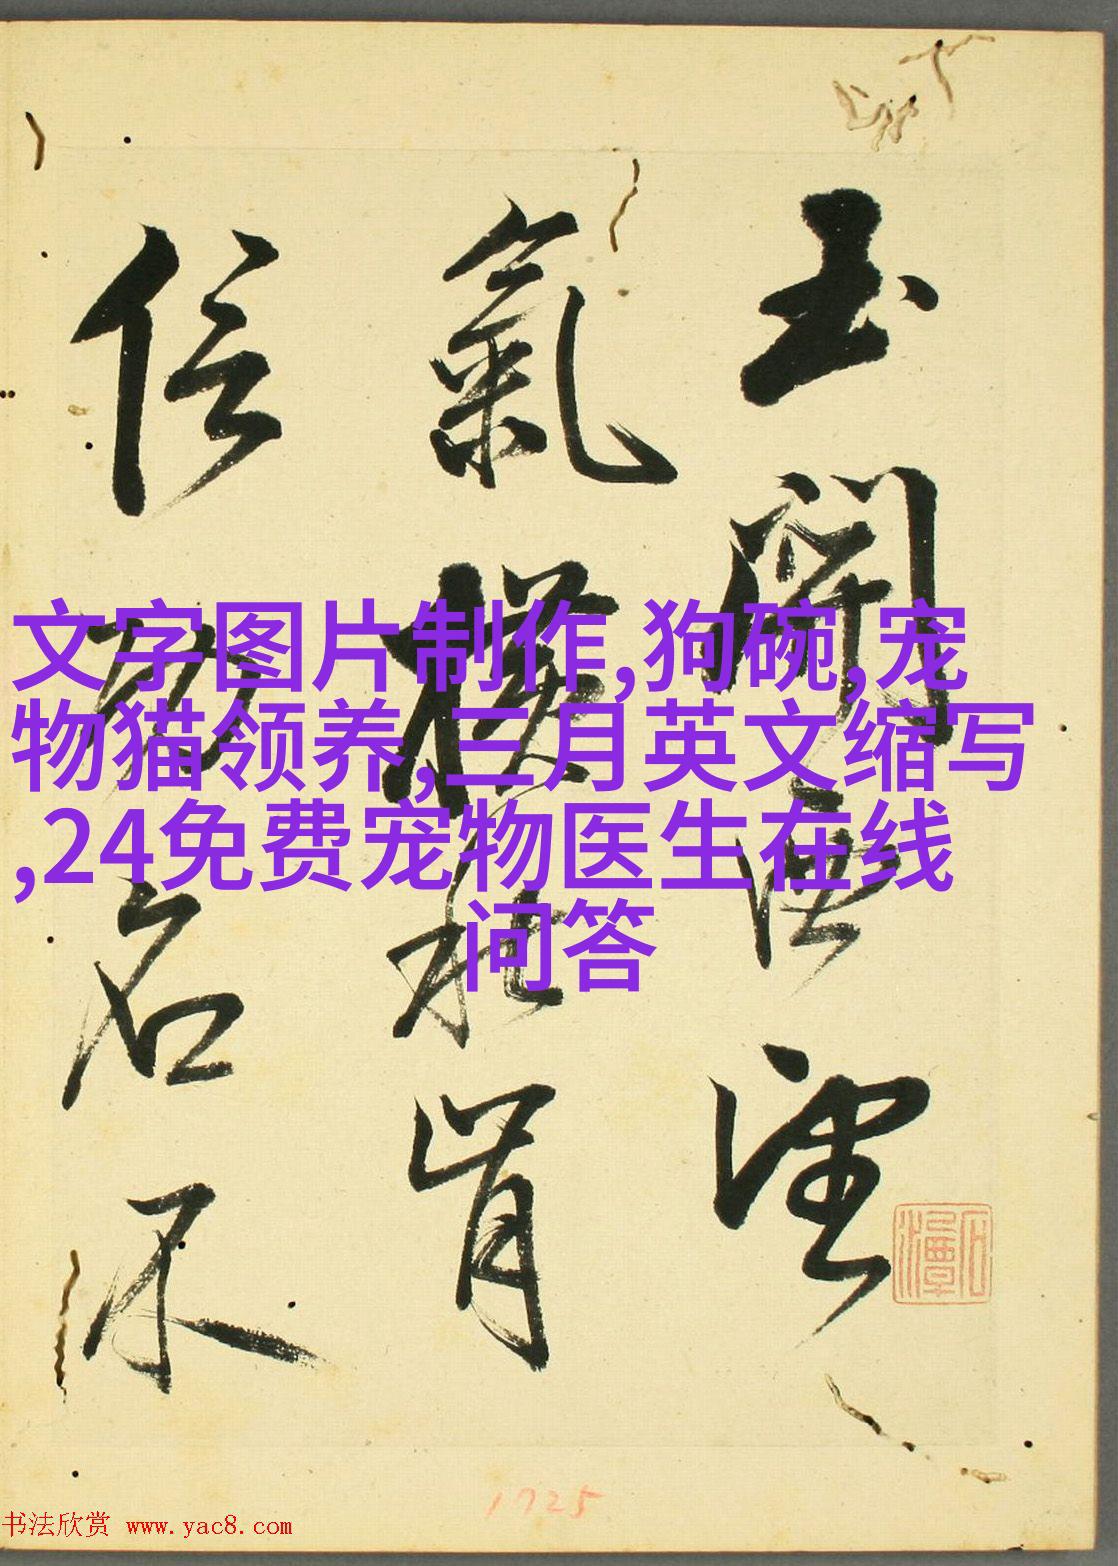 玉關西望
氣橫秋肯
信功名不
文字图片制作,狗碗,宠
物猫领养,三月英文缩写
,24免费宠物医生在线
问答
1725
书法欣赏 www.yac8.com